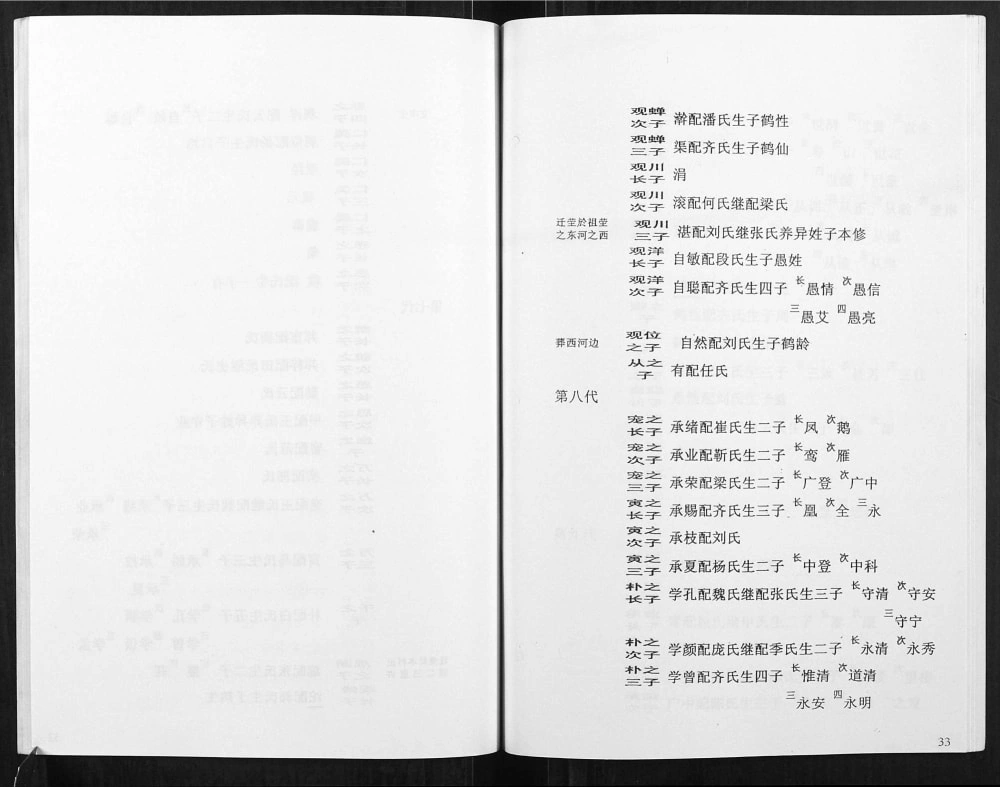 观蝉次子 澣配潘氏生子鹤性
观蝉三子 渠配齐氏生子鹤仙
观川长子 涓
观川次子 滚配何氏继配梁氏
迁茔於祖茔之东河之西 观川三子 湛配刘氏继张氏养异姓子本修
观洋长子 自敏配段氏生子愚姓
观洋次子 自聪配齐氏生四子 长愚情 次愚信
三愚艾 四愚亮
葬西河边 观位之子 自然配刘氏生子鹤龄
从之子 有配任氏
第八代
宠之长子 承绪配崔氏生二子 长凤 次鹅
宠之次子 承业配靳氏生二子 长鸾 次雁
宠之三子 承荣配梁氏生二子 长广登 次广中
寅之长子 承赐配齐氏生三子 长凰 次全 三永
寅之次子 承枝配刘氏
寅之三子 承夏配杨氏生二子 长中登 次中科
朴之长子 学孔配魏氏继配张氏生三子 长守清 次守安
三守宁
朴之次子 学颜配庞氏继配季氏生二子 长永清 次永秀
朴之三子 学曾配齐氏生四子 长惟清 次道清
三永安 四永明
33